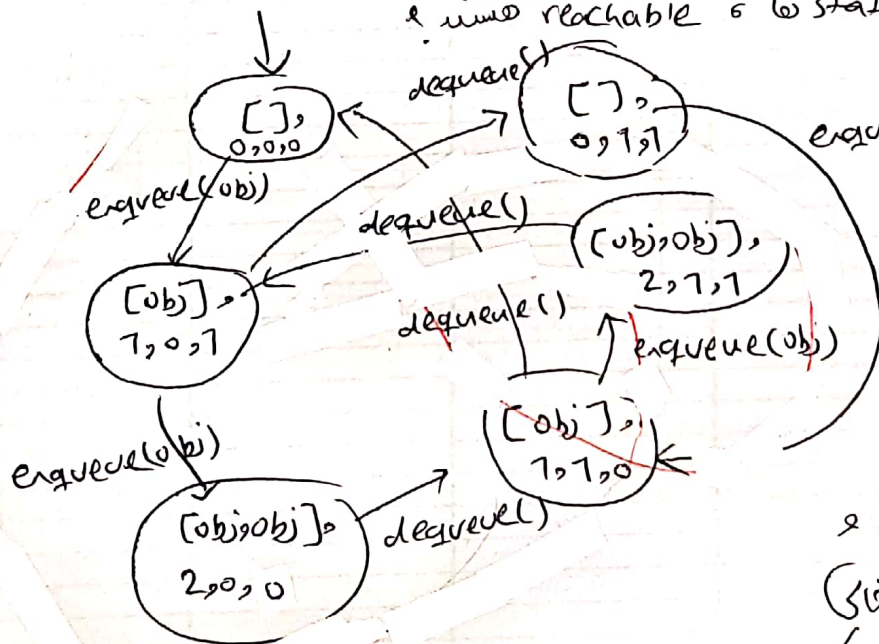 reachable 6
dequeue()
[],
0,0,0
[],
0,1,1
enqueue(obj)
dequeue()
[obj,obj],
2,1,1
[obj],
1,0,1
dequeue()
enqueue(obj)
[obj],
1,1,0
enqueue(obj)
[obj,obj],
2,0,0
dequeue()